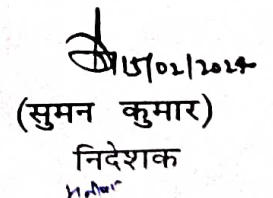 15/02/2024
(सुमन कुमार)
निदेशक